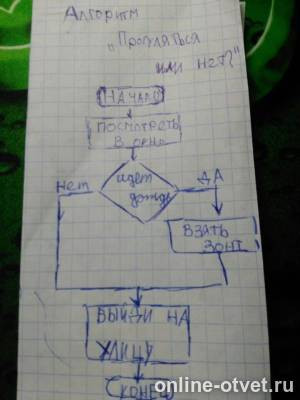 Алгоритм
"Прогуляться
или нет?"
НАЧАЛО
ПОСМОТРЕТЬ
В ОКНО
Нет
идет
дождь
ДА
ВЗЯТЬ
ЗОНТ
ВЫЙДИ НА
УЛИЦУ
КОНЕЦ
online-otvet.ru